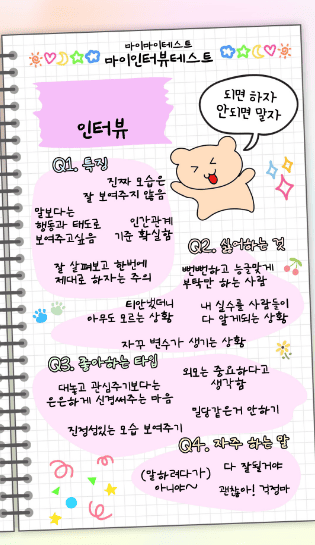 마이마이테스트
마이인터뷰테스트
되면 하자
안되면 말자
인터뷰
Q1. 특징
진짜 모습은
잘 보여주지 않음
말보다는
행동과 태도로
보여주고싶음
인간관계
기준 확실함
잘 살펴보고 한번에
제대로 하자는 주의
Q2. 싫어하는 것
뻔뻔하고 능글맞게
부탁만 하는 사람
티안냈더니
아무도 모르는 상황
내 실수를 사람들이
다 알게되는 상황
자꾸 변수가 생기는 상황
Q3. 좋아하는 타입
대놓고 관심주기보다는
은은하게 신경써주는 마음
외모는 중요하다고
생각함
밀당같은거 안하기
진정성있는 모습 보여주기
Q4. 자주 하는 말
(말하려다가)
아니야~
다 잘될거야
괜찮아! 걱정마